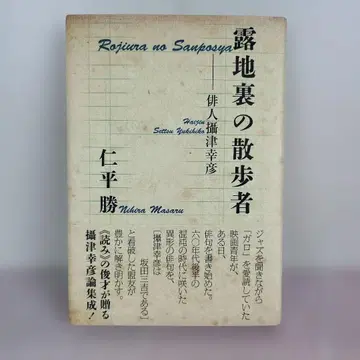 Rojiura no Sanposya
露地裏の散歩者
――俳人攝津幸彦
Haijin
Settsu Yukihiko
仁平勝
Nihira Masaru
ジャズを聞きながら
「ガロ」を愛読していた
映画青年が、
ある日、
俳句を書き始めた。
六〇年代後半の
混沌の時代に咲いた
異形の俳句を、
「攝津幸彦は
坂田三吉である」
と看破した盟友が
豊かに解き明かす。
《読み》の俊才が贈る
攝津幸彦論集成!